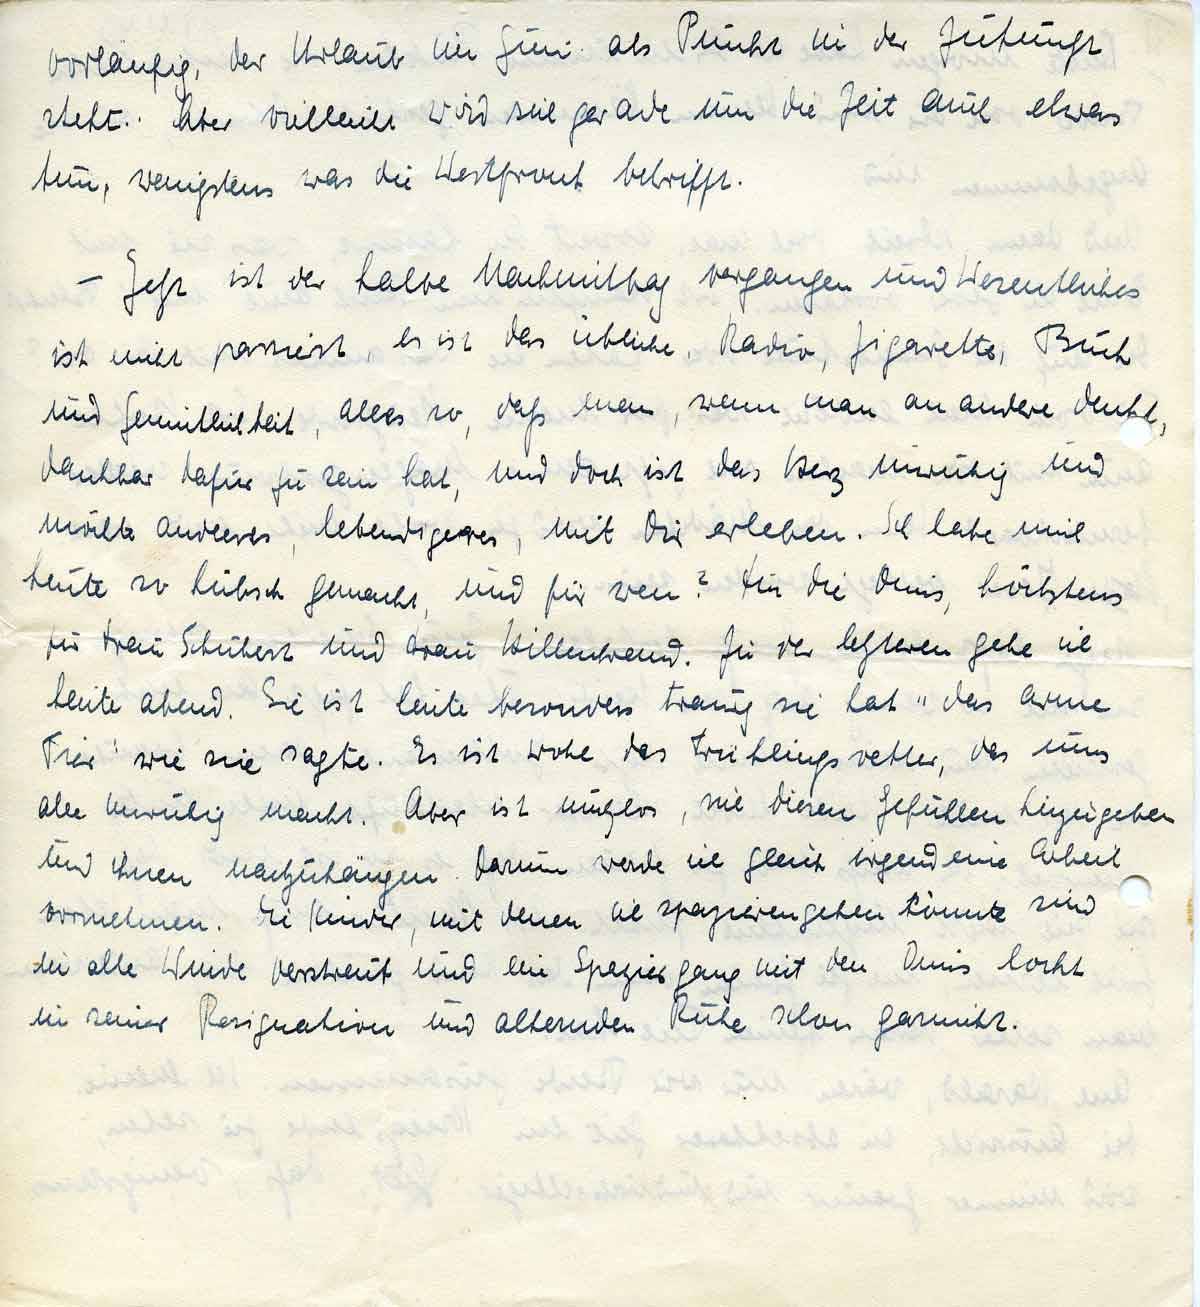 vorläufig, der Urlaub im Juni als Punkt in der Zukunft
steht. Aber vielleicht wird sich gerade um die Zeit auch etwas
tun, wenigstens was die Westfront betrifft.
– Jetzt ist der halbe Nachmittag vergangen und Wesentliches
ist nicht passiert, es ist das übliche, Radio, Zigarette, Buch
und Gemütlichkeit, alles so, daß man, wenn man an andere denkt,
dankbar dafür zu sein hat, und doch ist das Herz unruhig und
möchte anderes, lebendigeres, mit Dir erleben. Ich habe mich
heute so hübsch gemacht, und für wen? Für die Omis, höchstens
für Frau Schubert und Frau Hillenbrand. Zu der letzteren gehe ich
heute abend. Sie ist heute besonders traurig sie hat "das arme
Tier" wie sie sagte. Es ist wohl das Frühlingswetter, das uns
alle unruhig macht. Aber ist nutzlos, sich diesen Gefühlen hinzugeben
und ihnen nachzuhängen. Darum werde ich gleich irgendeine Arbeit
vornehmen. Die Kinder, mit denen ich spazierengehen könnte sind
in alle Winde verstreut und ein Spaziergang mit den Omis lockt
in seiner Resignation und alternden Ruhe schon garnicht.